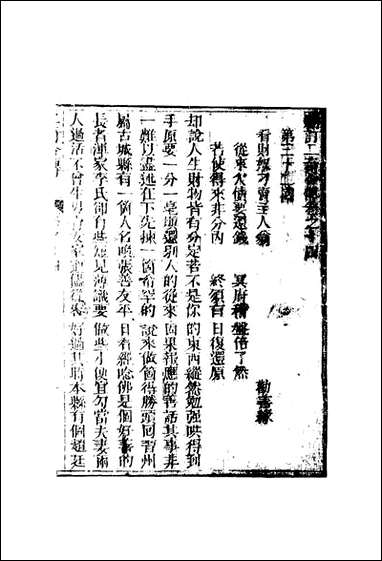 刪訂二奇合傳卷之十四
看財奴刁買主人翁
勸善緣
從來欠債要還錢　冥府稽盤倍了然
若使得來非分內　終須有日復還原
却說人生財物皆有分定若不是你的東西縱然勉強哄得到
手原要一分一毫填還別人的從來因果報應的善話其事非
一難以盡述在下先揀一箇希罕的說來做箇得勝頭回晋州
屬古城縣有一箇人名喚張善友平日看經念佛是個好善的
長者渾家李氏卻有些短見薄識要做些小便宜勾當夫妻兩
人過活不曾生男育女家道儘從容好過其時本縣有個趙廷